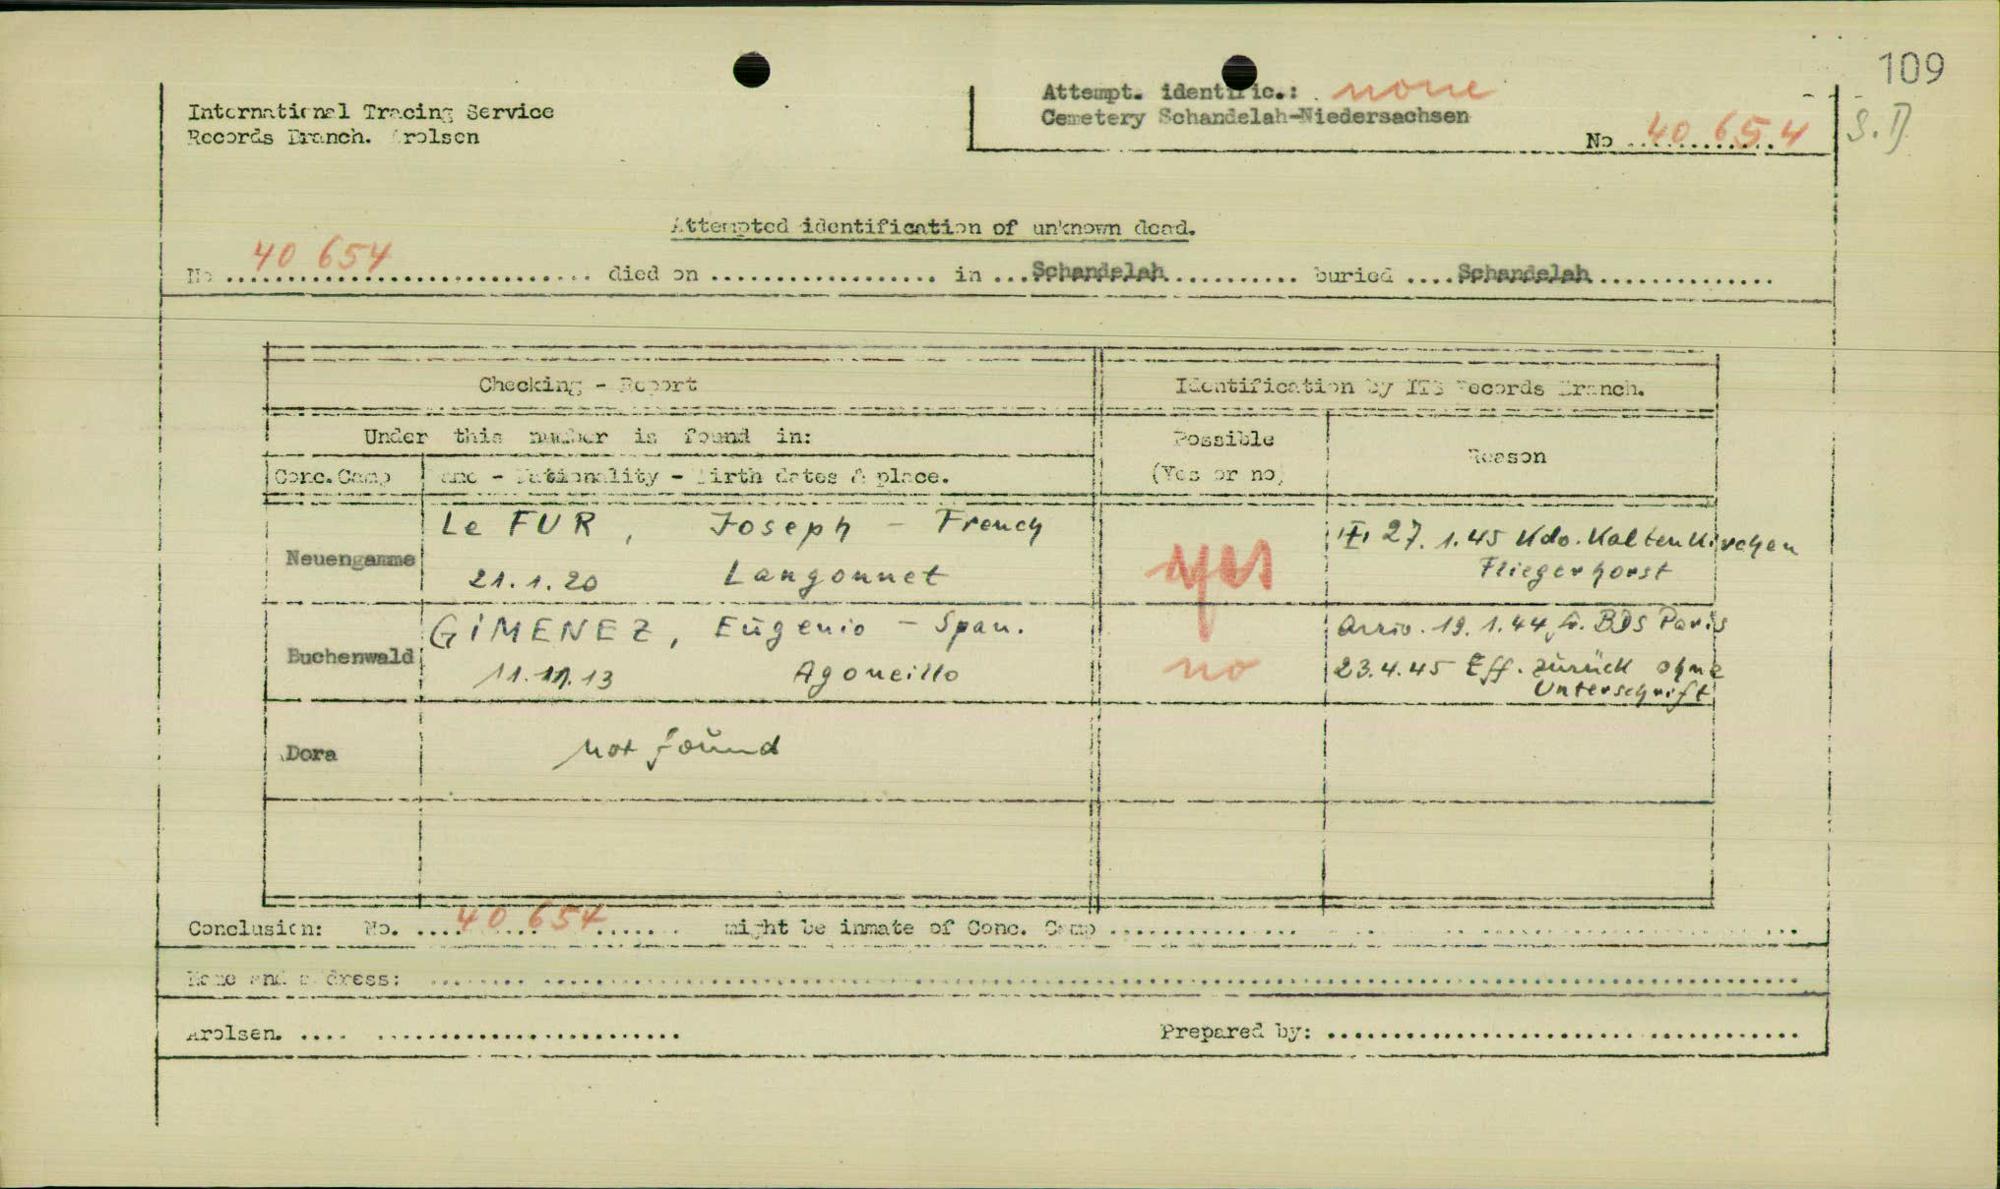 109
International Tracing Service
Records Branch. Arolsen
Attempt. identific.: none
Cemetery Schandelah-Niedersachsen
No ............ 40 654
S.D.
Attempted identification of unknown dead.
No 40 654 died on .................. in ...Schandelah........... buried ....Schandelah..............
Checking - Report
Identification by ITS Records Branch.
Under this number is found in:
Possible
(Yes or no)
Reason
Conc.Camp
Name - Nationality - Birth dates & place.
Neuengamme
Le FUR, Joseph - French
21.1.20 Langonnet
yes
27.1.45 Kdo. Kaltenkirchen
Fliegerhorst
Buchenwald
GIMENEZ, Eugenio - Span.
11.11.13 Agoncillo
no
Arriv. 19.1.44 fr. BDS Paris
23.4.45 Eff. zurück ohne
Unterschrift
Dora
not found
Conclusion: No. ....40 654....... might be inmate of Conc. Camp ...............
Name and address: ........
Arolsen. .... ........................
Prepared by: .......................................